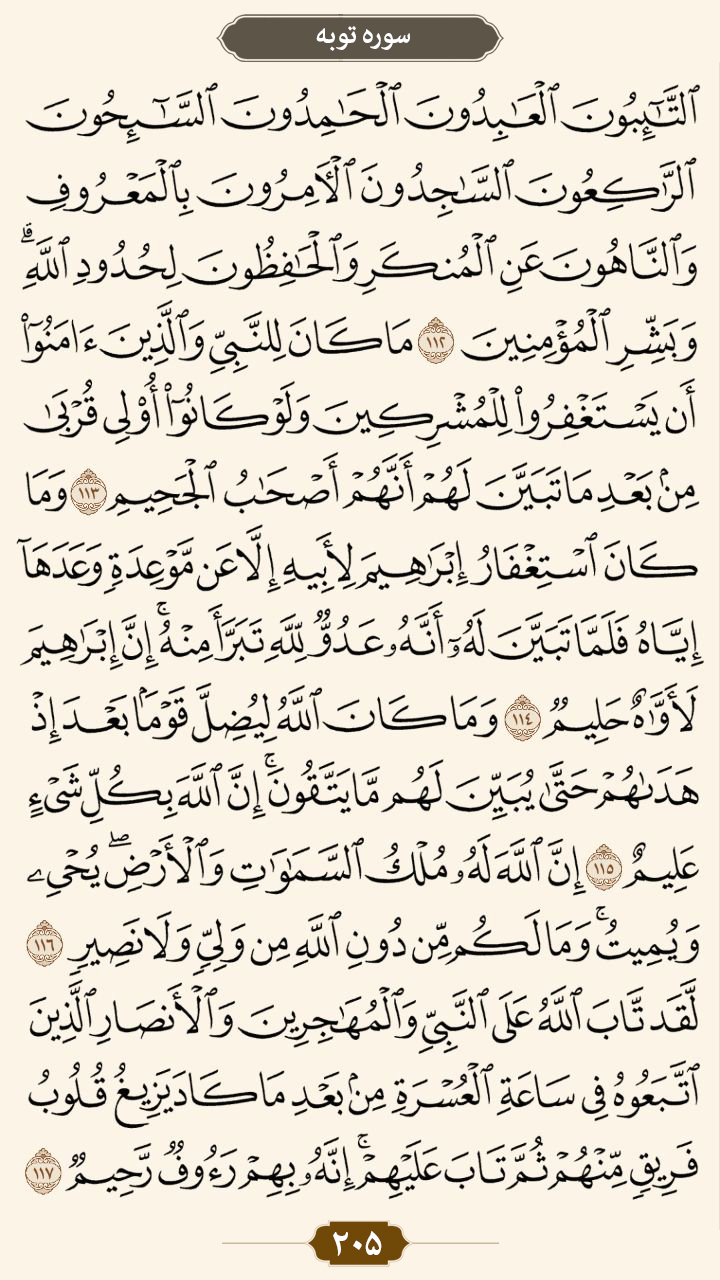 سوره توبه
ٱلتَّـٰٓئِبُونَ ٱلْعَـٰبِدُونَ ٱلْحَـٰمِدُونَ ٱلسَّـٰٓئِحُونَ
ٱلرَّٰكِعُونَ ٱلسَّـٰجِدُونَ ٱلْـَٔامِرُونَ بِٱلْمَعْرُوفِ
وَٱلنَّاهُونَ عَنِ ٱلْمُنكَرِ وَٱلْحَـٰفِظُونَ لِحُدُودِ ٱللَّهِ ۗ
وَبَشِّرِ ٱلْمُؤْمِنِينَ ١١٢ مَا كَانَ لِلنَّبِىِّ وَٱلَّذِينَ ءَامَنُوٓا۟
أَن يَسْتَغْفِرُوا۟ لِلْمُشْرِكِينَ وَلَوْ كَانُوٓا۟ أُو۟لِى قُرْبَىٰ
مِنۢ بَعْدِ مَا تَبَيَّنَ لَهُمْ أَنَّهُمْ أَصْحَـٰبُ ٱلْجَحِيمِ ١١٣ وَمَا
كَانَ ٱسْتِغْفَارُ إِبْرَٰهِيمَ لِأَبِيهِ إِلَّا عَن مَّوْعِدَةٍ وَعَدَهَآ
إِيَّاهُ فَلَمَّا تَبَيَّنَ لَهُۥٓ أَنَّهُۥ عَدُوٌّ لِّلَّهِ تَبَرَّأَ مِنْهُ ۚ إِنَّ إِبْرَٰهِيمَ
لَأَوَّٰهٌ حَلِيمٌ ١١٤ وَمَا كَانَ ٱللَّهُ لِيُضِلَّ قَوْمًۢا بَعْدَ إِذْ
هَدَىٰهُمْ حَتَّىٰ يُبَيِّنَ لَهُم مَّا يَتَّقُونَ ۚ إِنَّ ٱللَّهَ بِكُلِّ شَىْءٍ
عَلِيمٌ ١١٥ إِنَّ ٱللَّهَ لَهُۥ مُلْكُ ٱلسَّمَـٰوَٰتِ وَٱلْأَرْضِ ۖ يُحْىِۦ
وَيُمِيتُ ۚ وَمَا لَكُم مِّن دُونِ ٱللَّهِ مِن وَلِىٍّ وَلَا نَصِيرٍ ١١٦
لَّقَد تَّابَ ٱللَّهُ عَلَى ٱلنَّبِىِّ وَٱلْمُهَـٰجِرِينَ وَٱلْأَنصَارِ ٱلَّذِينَ
ٱتَّبَعُوهُ فِى سَاعَةِ ٱلْعُسْرَةِ مِنۢ بَعْدِ مَا كَادَ يَزِيغُ قُلُوبُ
فَرِيقٍ مِّنْهُمْ ثُمَّ تَابَ عَلَيْهِمْ ۚ إِنَّهُۥ بِهِمْ رَءُوفٌ رَّحِيمٌ ١١٧
۲۰۵